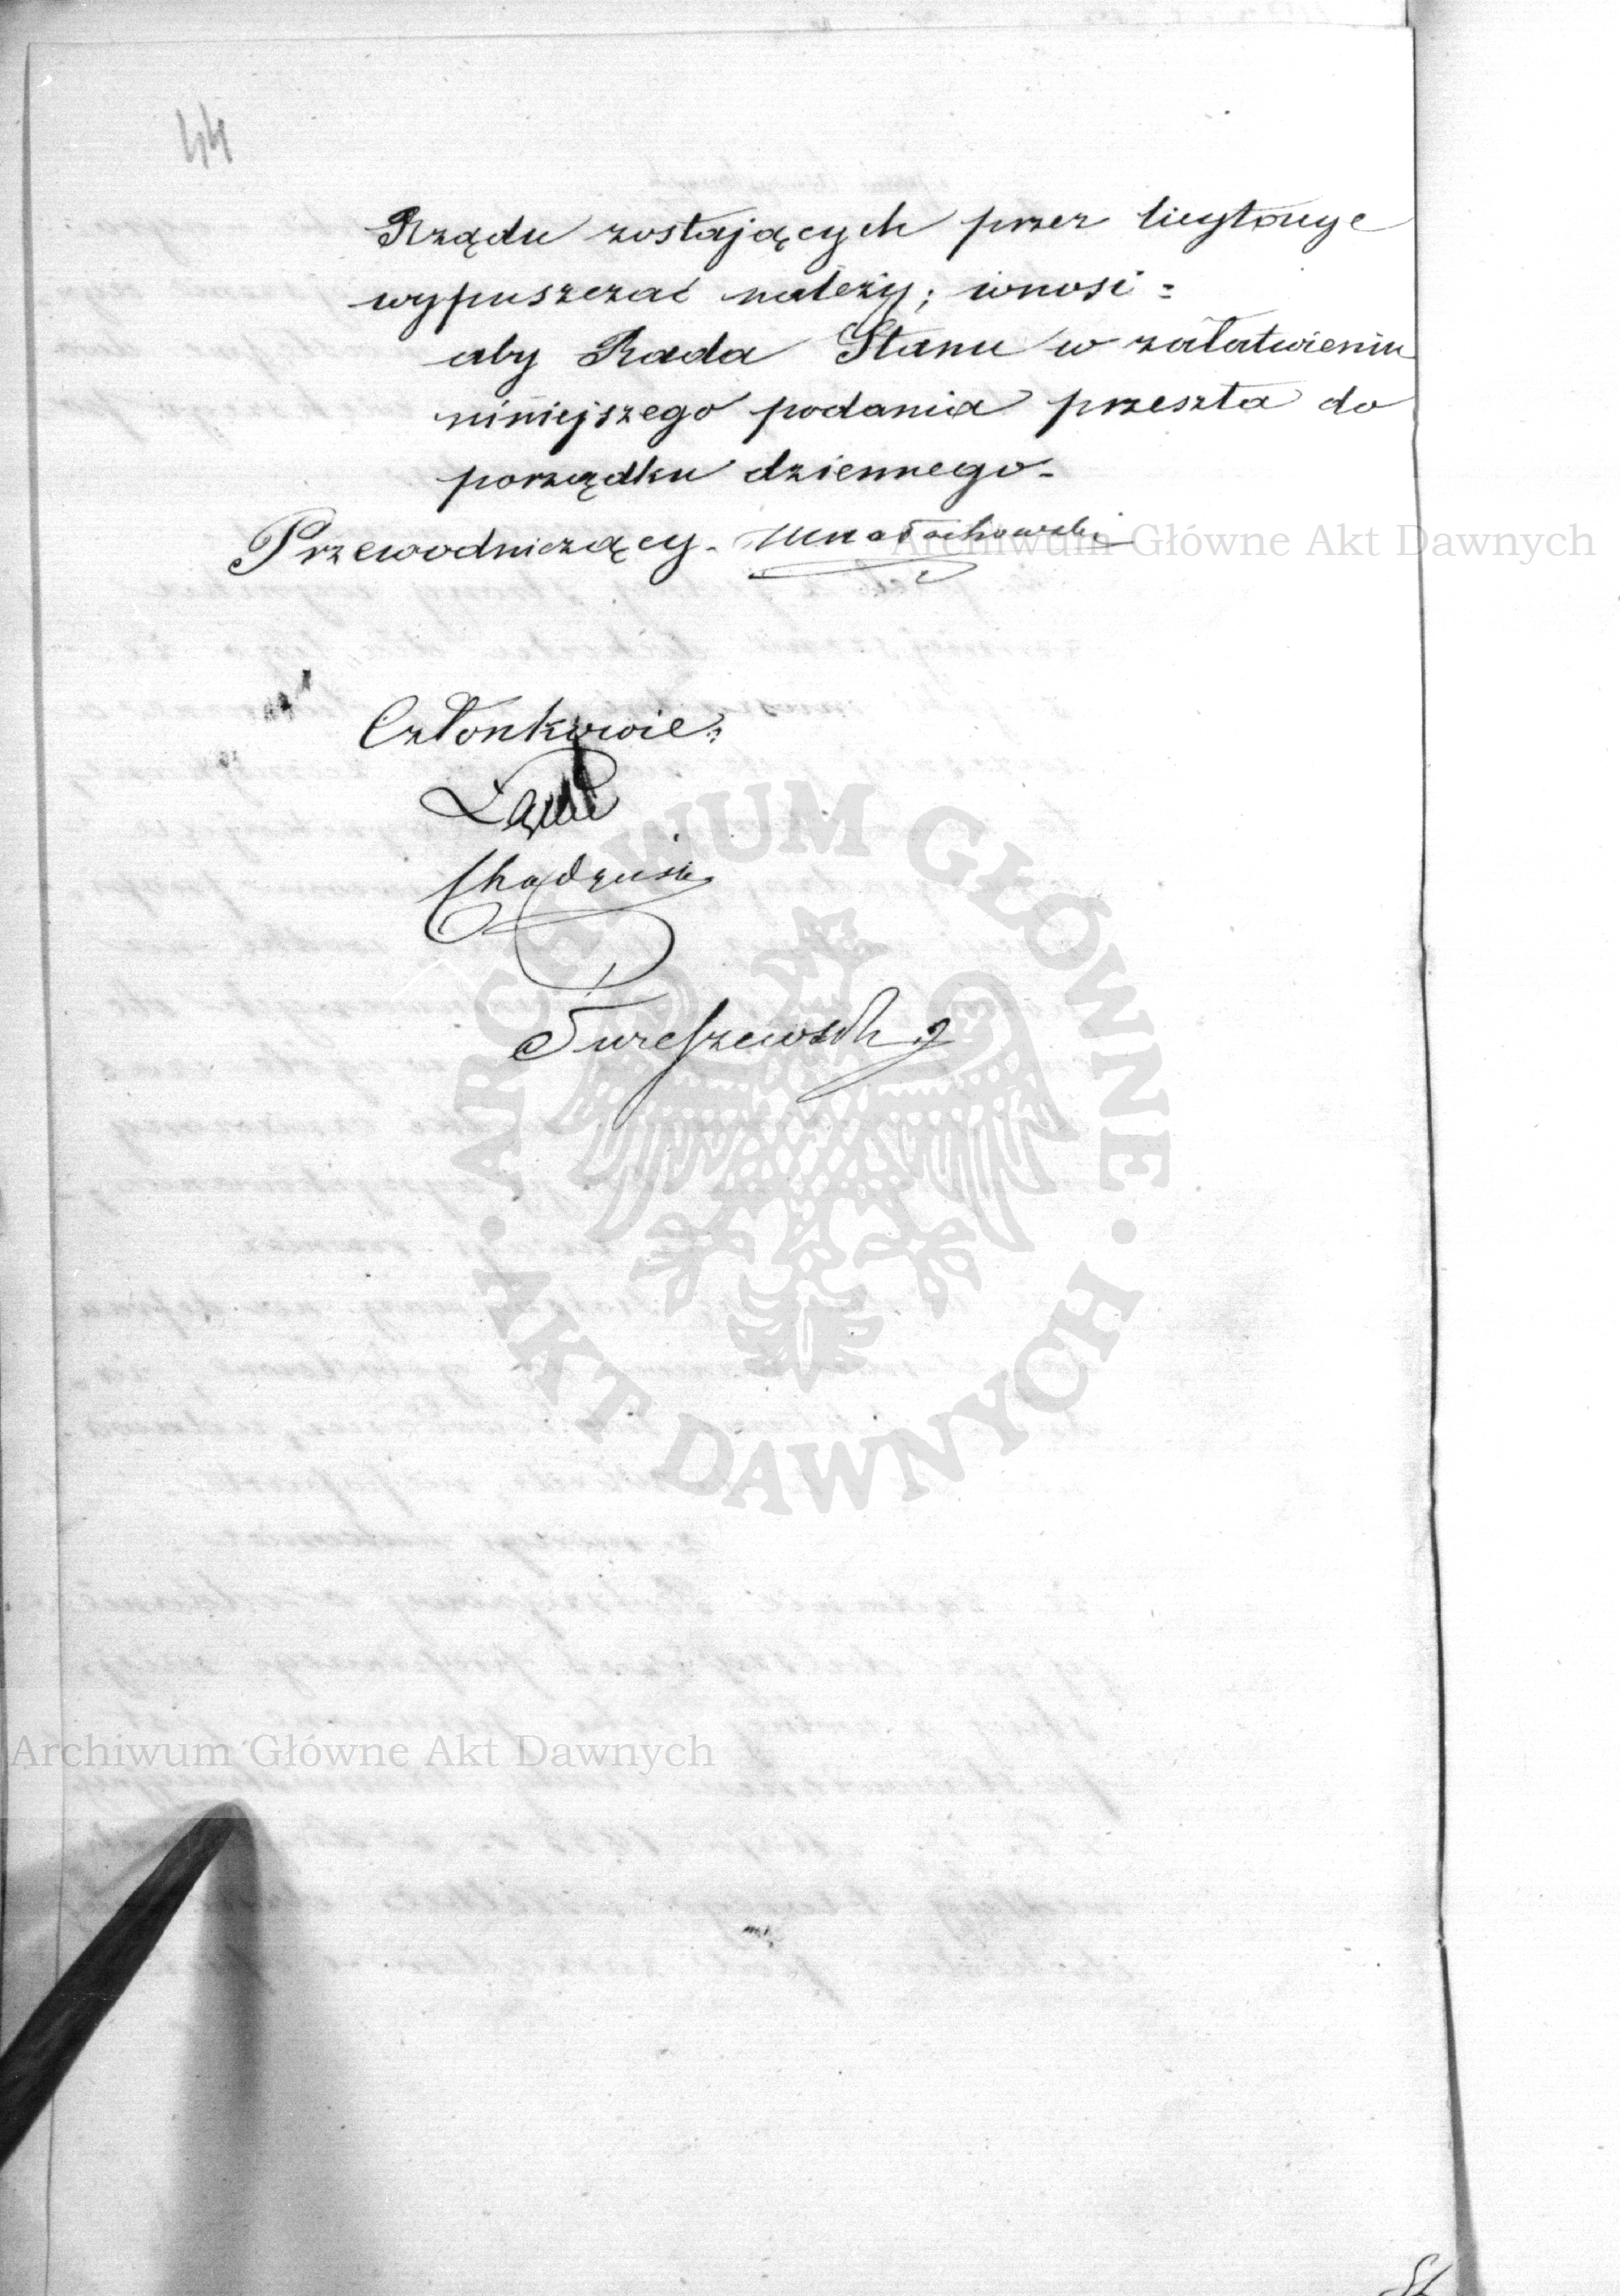 44
Rządu zostających przez licytacye
wypuszczać należy; wnosi =
aby Rada Stanu w załatwieniu
niniejszego podania przeszła do
porządku dziennego.
Przewodniczący. Małachowski
Archiwum Główne Akt Dawnych
Członkowie:
Chądzyński
Tureszewski
ARCHIWUM GŁÓWNE · AKT DAWNYCH ·
Archiwum Główne Akt Dawnych